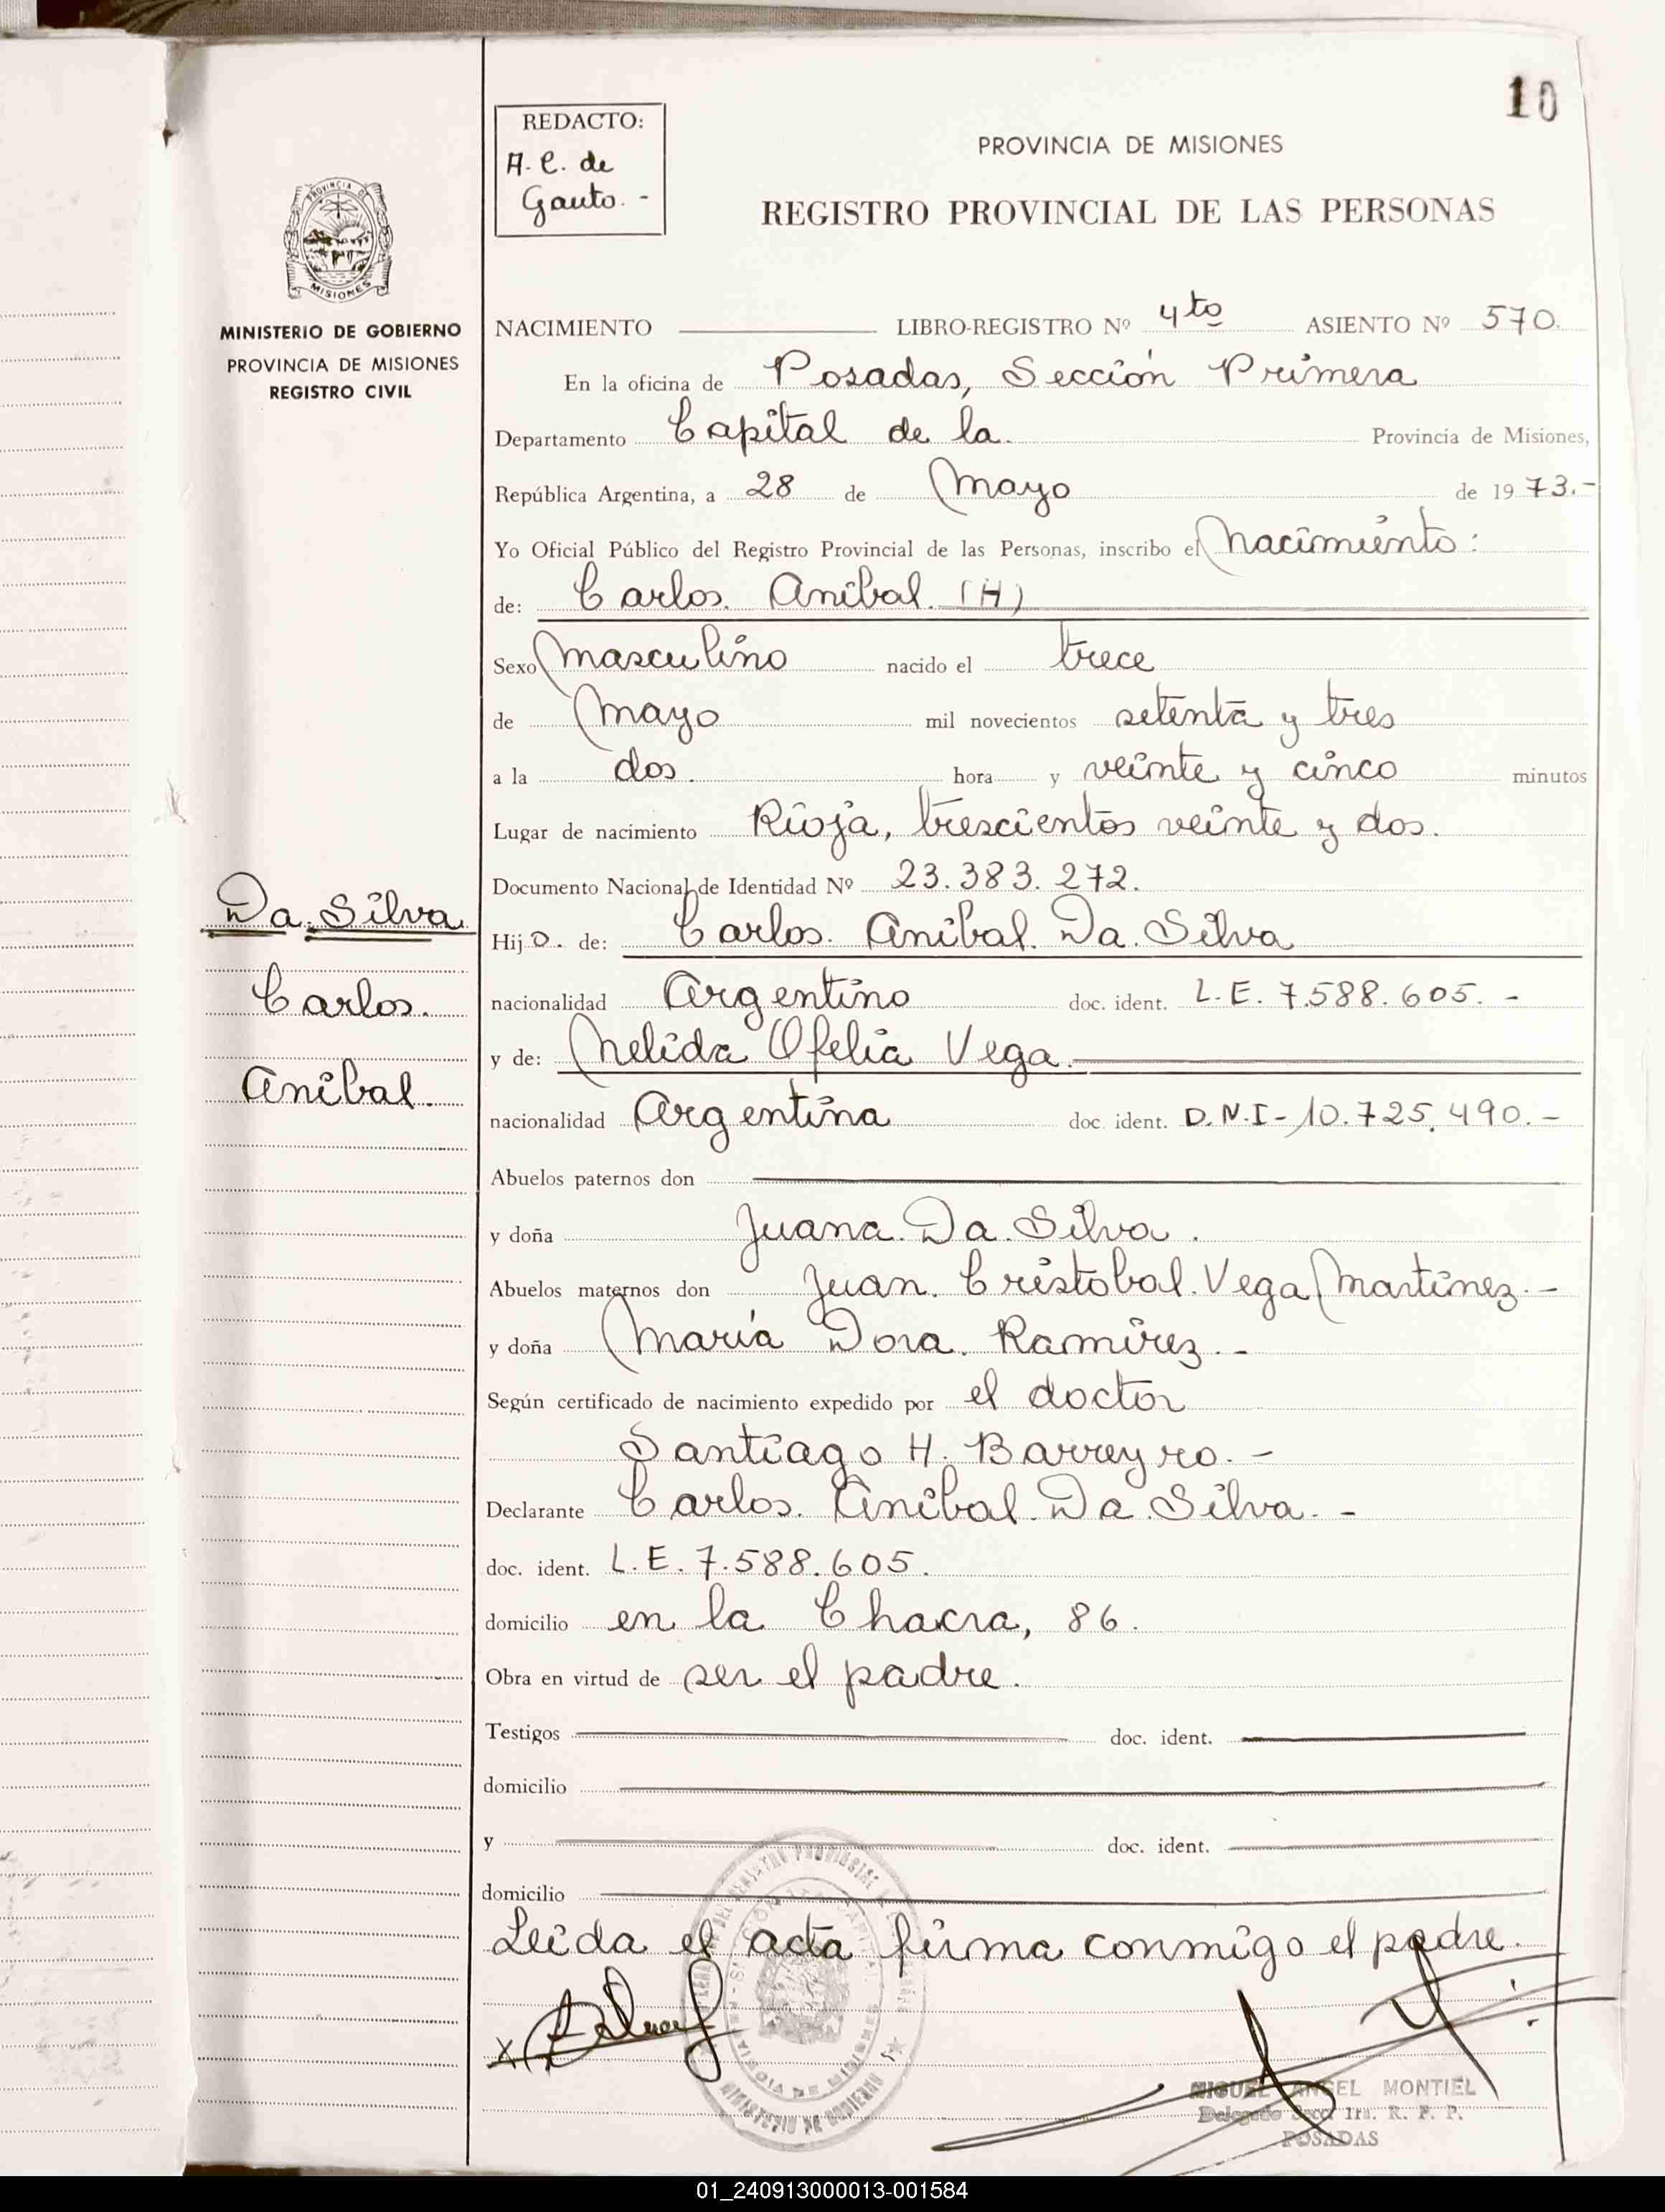 10
REDACTO:
A. C. de
Gauto. -
PROVINCIA DE MISIONES
REGISTRO PROVINCIAL DE LAS PERSONAS
PROVINCIA DE
MISIONES
MINISTERIO DE GOBIERNO
PROVINCIA DE MISIONES
REGISTRO CIVIL
NACIMIENTO LIBRO-REGISTRO Nº 4to ASIENTO Nº 570.
En la oficina de Posadas, Sección Primera
Departamento Capital de la. Provincia de Misiones,
República Argentina, a 28 de Mayo de 1973.-
Yo Oficial Público del Registro Provincial de las Personas, inscribo el Nacimiento:
de: Carlos. Anibal. (H)
Sexo Masculino nacido el trece
de Mayo mil novecientos setenta y tres
a la dos. hora y veinte y cinco minutos
Lugar de nacimiento Rioja, trescientos veinte y dos.
Documento Nacional de Identidad Nº 23.383.272.
Da. Silva
Carlos.
Anibal.
Hijo. de: Carlos. Anibal. Da. Silva
nacionalidad Argentino doc. ident. L.E. 7.588.605. -
y de: Nelida Ofelia Vega.
nacionalidad Argentina doc. ident. D.N.I- 10.725.490.-
Abuelos paternos don
y doña Juana. Da. Silva.
Abuelos maternos don Juan. Cristobal. Vega Martinez. -
y doña María Dora. Ramirez. -
Según certificado de nacimiento expedido por el doctor
Santiago H. Barreyro. -
Declarante Carlos. Anibal. Da. Silva. -
doc. ident. L.E. 7.588.605.
domicilio en la Chacra, 86.
Obra en virtud de ser el padre.
Testigos doc. ident.
domicilio
y doc. ident.
domicilio
Leida el acta firma conmigo el padre.
MINISTERIO DE GOBIERNO
MIGUEL ANGEL MONTIEL
Delegado Secc 1ra. R. P. P.
POSADAS
01_240913000013-001584